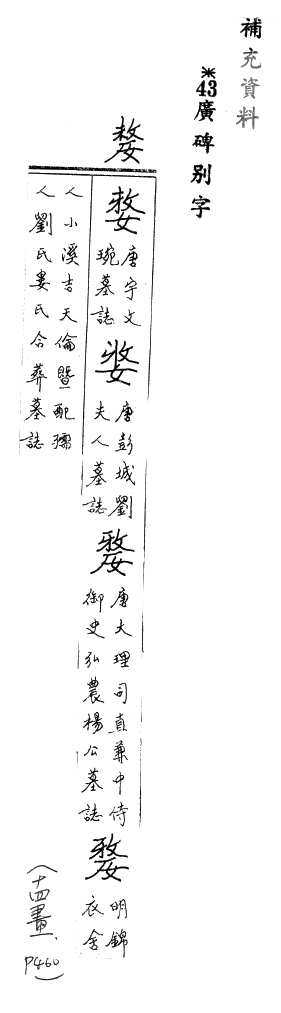 補充資料
※43廣碑别字
嫠
嫠 唐宇文
琬墓誌
嫠 唐彭城劉
夫人墓誌
嫠 唐大理司直兼中侍
御史弘農楊公墓誌
嫠 明錦
衣舍
人小溪吉天倫暨配孺
人劉氏婁氏合葬墓誌
(十四畫. P460)